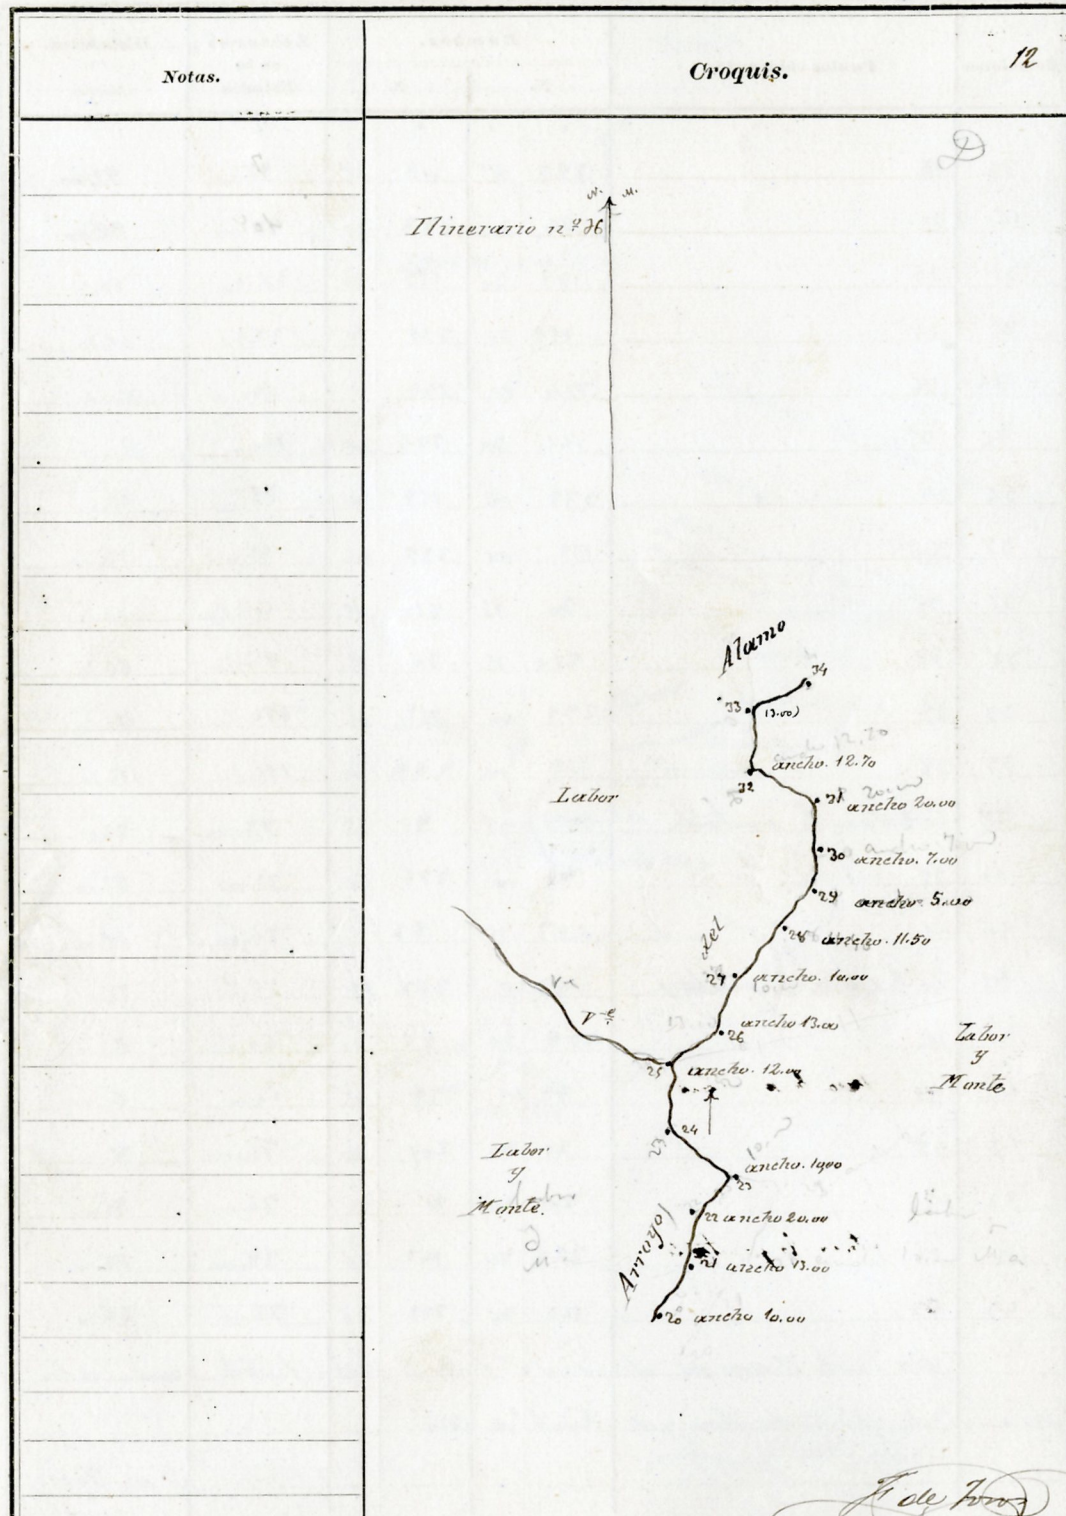 Notas.
Croquis.
12
N. M.
Itinerario nº 36
Alamo
34
33
13.00
ancho. 12.70
32
Labor
31 ancho 20.00
30 ancho. 7.00
29 ancho 5.00
28 ancho. 11.50
del
27 ancho. 10.00
Vᵉ
ancho 13.00
26
25 ancho. 12.00
Labor
y
Monte
24
23
Labor
y
Monte.
ancho. 1900
23
22 ancho 20.00
Arroyo
21 ancho 13.00
20 ancho 10.00
F de